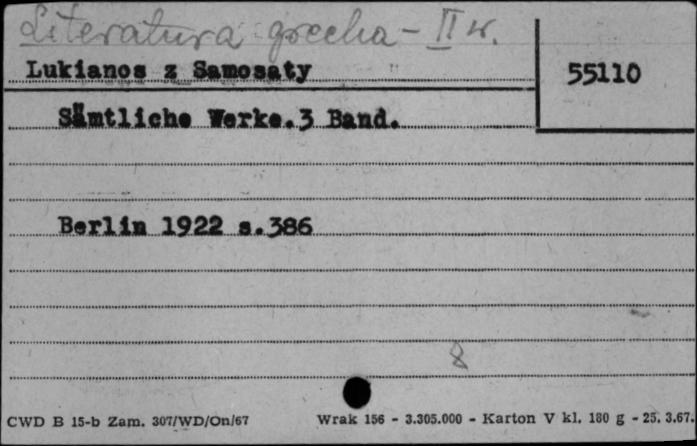 Literatura grecka - II w.
Lukianos z Samosaty
55110
Sämtliche Werke.3 Band.
Berlin 1922 s.386
8
CWD B 15-b Zam. 307/WD/On/67 Wrak 156 - 3.305.000 - Karton V kl. 180 g - 25. 3.67.